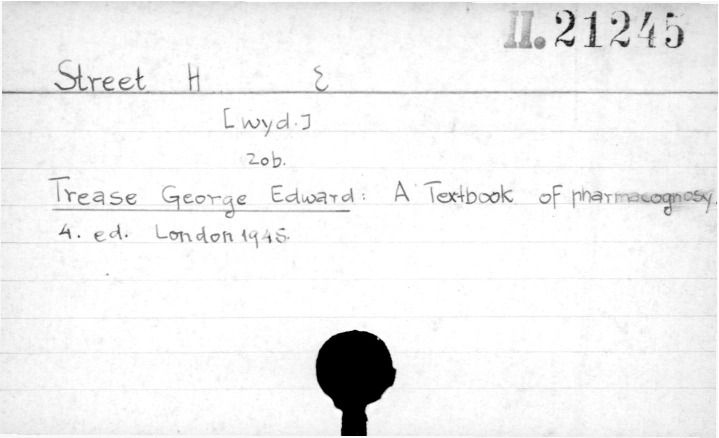 II. 21245
Street H E
[wyd.]
zob.
Trease George Edward: A Textbook of pharmacognosy.
4. ed. London 1945.